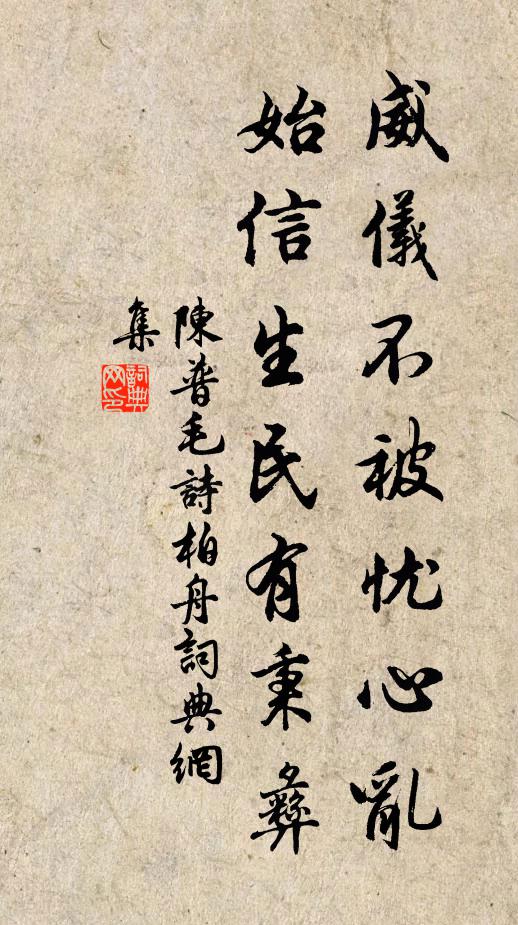 威儀不被忧心亂
始信生民有秉彝
陳普毛詩柏舟詞典網
集
詞典网印